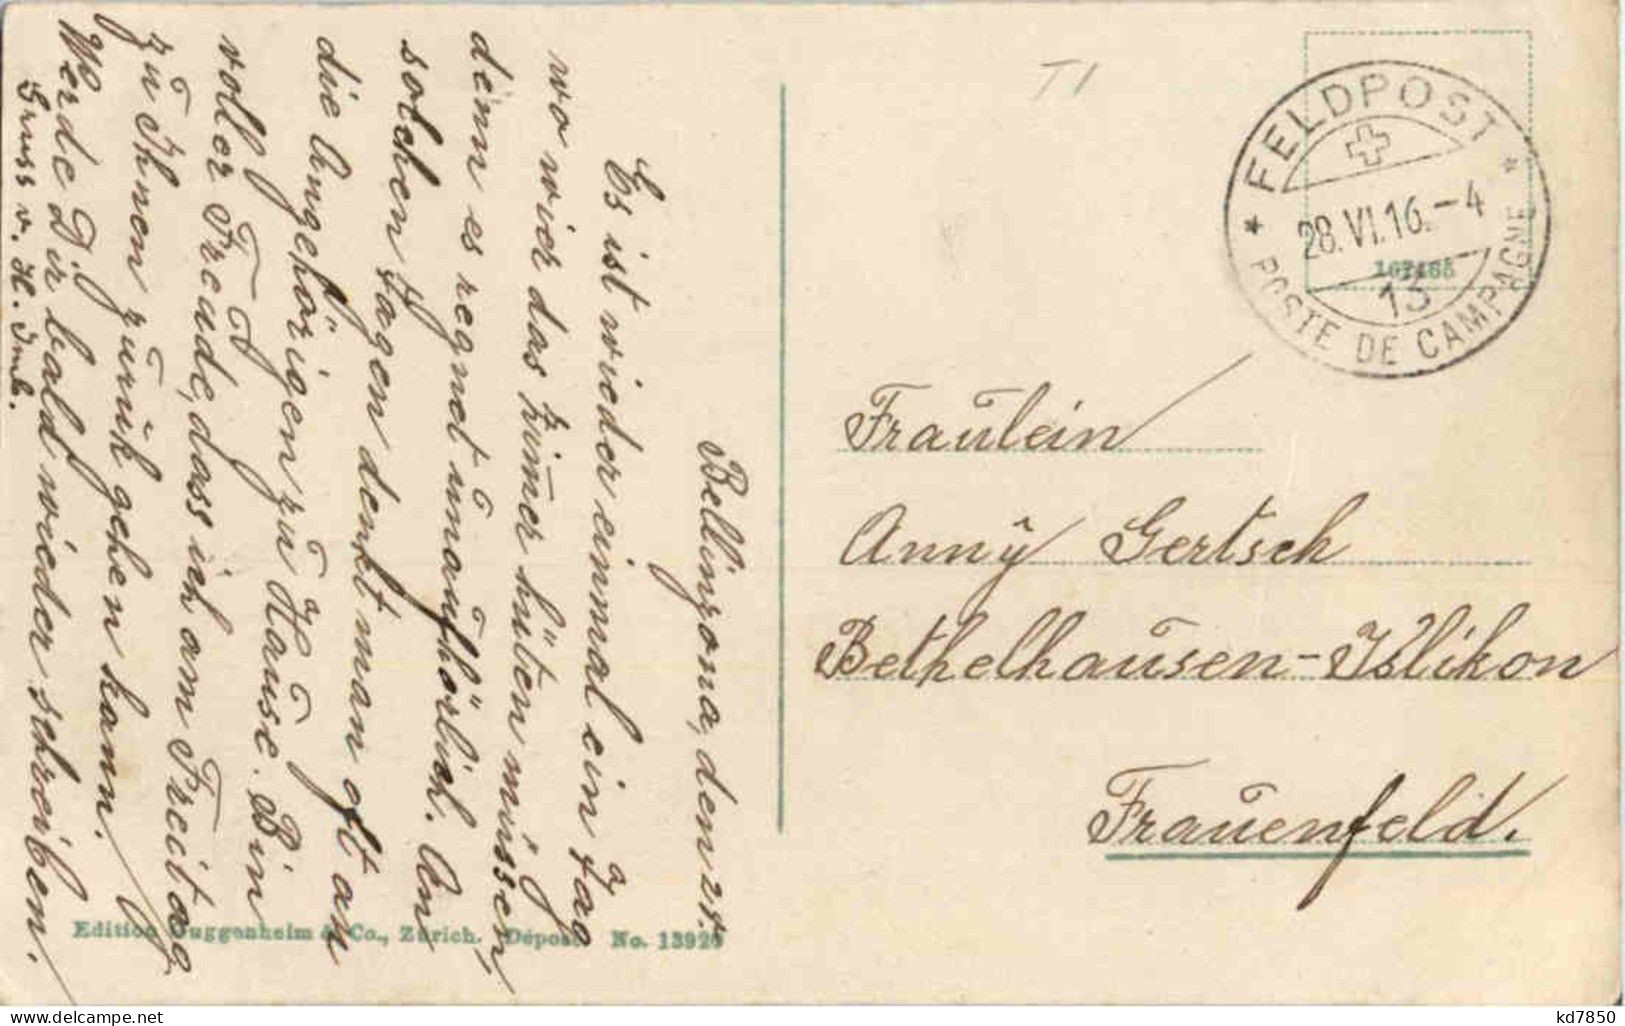 Bellinzona, den 28.
Es ist wieder einmal ein Tag
wo wier das Zimer hüten müssen,
denn es regnet unaufhörlich. An
solchen Tagen denkt man oft an
die Angehörigen zu Hause. Bin
voller Freude, dass ich am Freitag
zu Ihnen zurük gehen kann.
Werde Dir bald wieder schreiben.
Gruss v. H.
T1
FELDPOST
28.VI.16.-4
13
POSTE DE CAMPAGNE
Fräulein
Anny Gertsch
Bethelhausen-Islikon
Frauenfeld.
Edition Guggenheim & Co., Zürich. Déposé No. 13926
kd7850